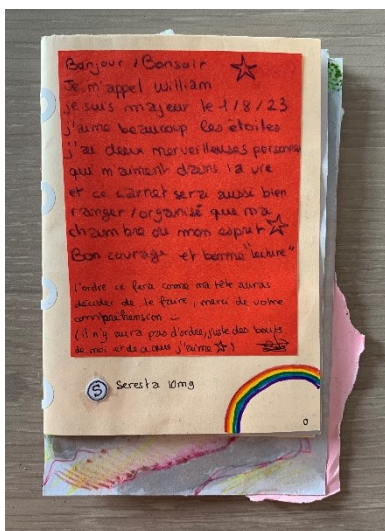 Bonjour / Bonsoir
Je m'appel William
je suis majeur le 1/8/23
j'aime beaucoup les étoiles
j'ai deux merveilleuses personnes
qui m'aiment dans la vie
et ce carnet sera aussi bien
ranger / organisé que ma
chambre ou mon esprit
Bon courage et bonne "lecture"
l'ordre ce fera comme ma tête auras
décider de le faire, merci de votre
compréhension
(il n'y aura pas d'ordre, juste des bouts
de moi et de ceux j'aime)
S Seresta 10mg
0